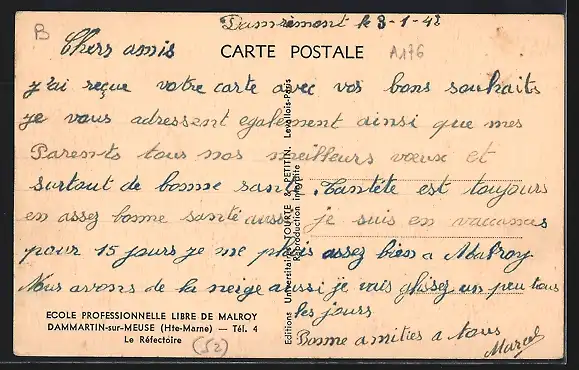 B
Damrémont le 3-1-42
Chers amis
CARTE POSTALE
A176
j'ai reçue votre carte avec vos bons souhaits
je vous adressent egalement ainsi que mes
Parents tous nos meilleurs vœux et
surtout de bonne santé. Tantéte est toujours
en assez bonne santé aussi je suis en vacances
pour 15 jours je me plais assez bien a Malroy
Nous avons de la neige aussi je vais glissez un peu tous
les jours
Bonne amities a tous
Marcel
ECOLE PROFESSIONNELLE LIBRE DE MALROY
DAMMARTIN-sur-MEUSE (Hte-Marne) — Tél. 4
Le Réfectoire
(52)
Editions Universitaires TOURTE & PETITIN, Levallois-Paris
Reproduction interdite